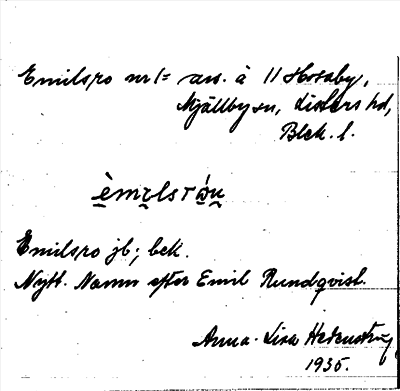 Emilsro nr 1 = avs. à 11 Hosaby,
Mjällby sn, Listers hd,
Blek. l.
èmɪlsrὼu
Emilsro jb; bek.
Nytt. Namn efter Emil Rundqvist.
Anna-Lisa Hedenstig
1935.